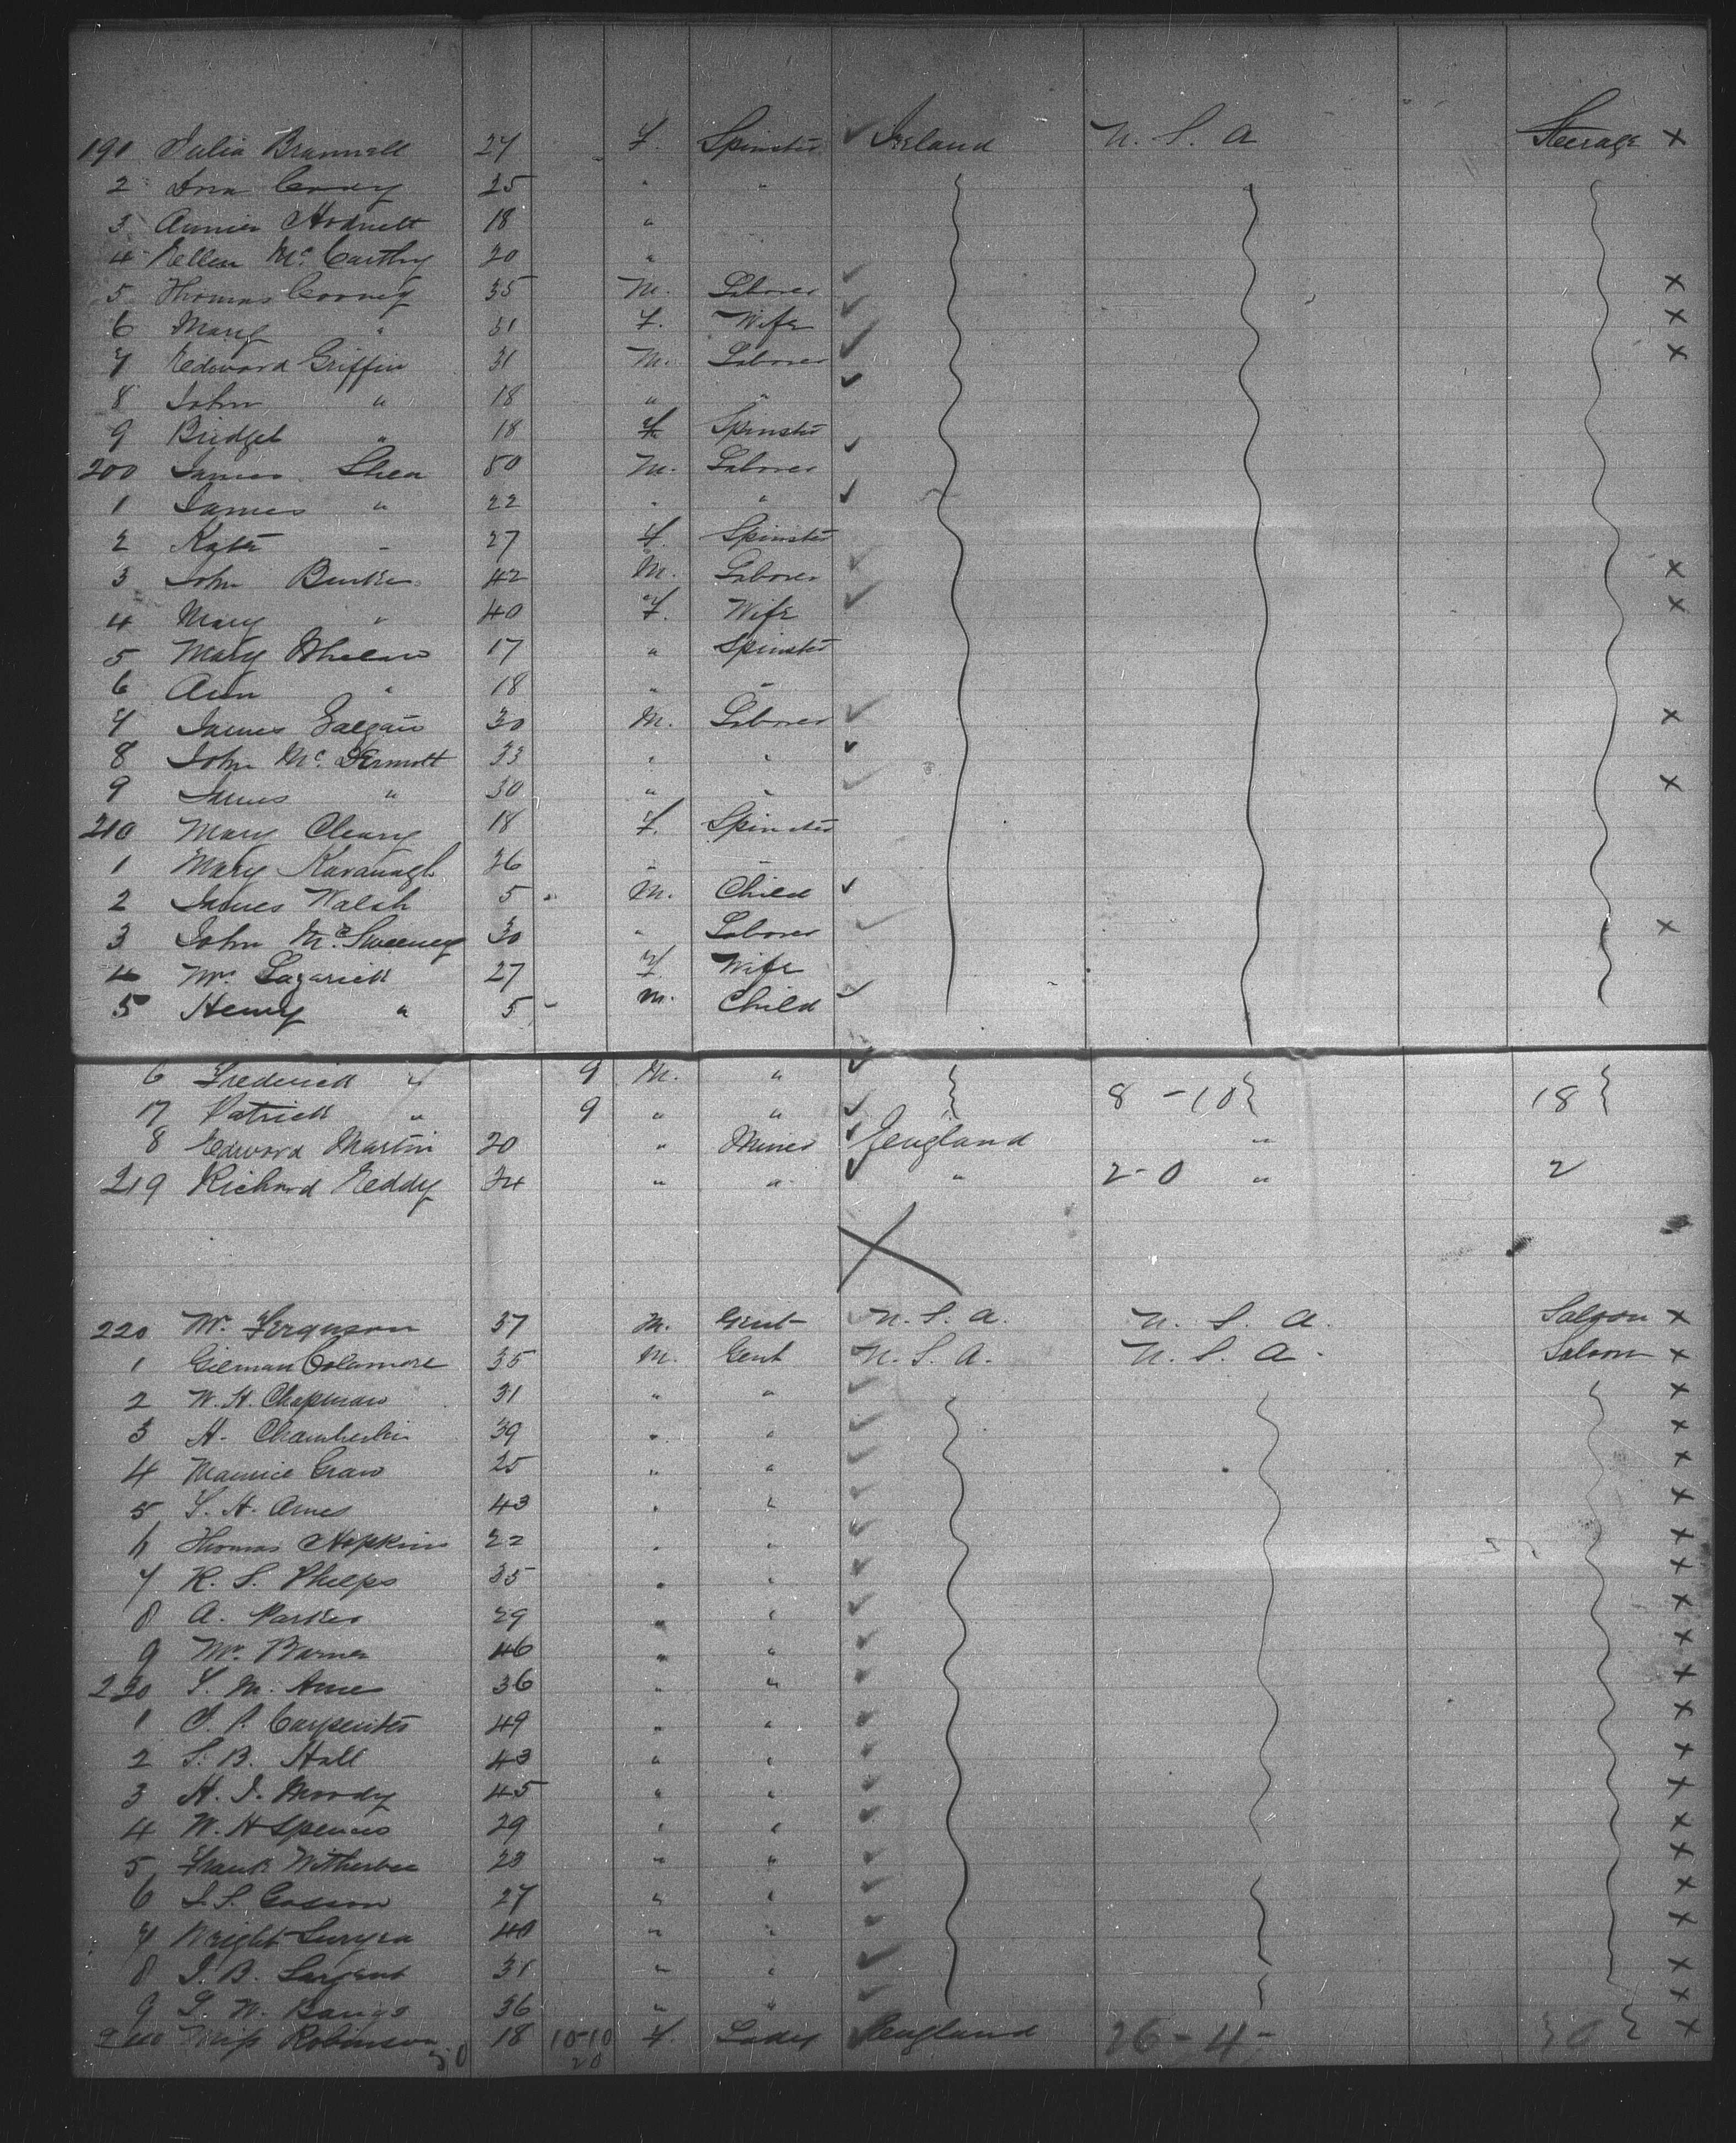 191 Julia Brannell 24 F. Spinster Ireland U. S. A Steerage X
2 Dora 25 " "
3 Annie Hodnett 18 "
4 Ellen Mc Carthy 20 "
5 Thomas Cooney 35 M. Laborer X
6 Mary " 31 F. Wife X
7 Edward Griffin 31 M. Laborer X
8 John " 18 " "
9 Bridget " 18 F Spinster
200 James Shea 50 M. Laborer
1 James " 22 " "
2 Kate " 27 F. Spinster
3 John Burke 42 M. Laborer X
4 Mary " 40 F. Wife X
5 Mary Whelan 17 " Spinster
6 Ann " 18 " "
7 James 30 M. Laborer X
8 John Mc. Dermott 33 " "
9 James " 30 " " X
210 Mary Cleary 18 F. Spinster
1 Mary Kavanagh 26 " "
2 James Walsh 5 M. Child
3 John McSweeney 30 " Laborer X
4 Mrs Lazarick 27 F Wife
5 Henry " 5 M. Child
6 Frederick " 9 M. " 8 - 10 18
17 Patrick " 9 " "
8 Edward Martin 20 " Miner England "
219 Richard Eddy 34 " " " 2-0 " 2
X
220 Mr. Ferguson 37 M. Gent U. S. A. U. S. A. Saloon X
1 Gilman Colamore 35 M. Gent U. S. A. U. S. A. Saloon X
2 W. H. Chapman 31 " " X
3 H. Chamberlin 39 " " X
4 Maurice Graw 25 " " X
5 S. H. Ames 43 " " X
6 Thomas Hopkins 22 " " X
7 R. S. Phelps 35 " " X
8 A. Parker 29 " " X
9 Mr. Barnes 46 " " X
230 S. M. Ames 36 " " X
1 J. P. Carpenter 49 " " X
2 S. B. Hall 43 " " X
3 H. J. Moody 45 " " X
4 W. H Spencer 29 " " X
5 Frank Witherbee 23 " " X
6 J. S. 27 " " X
7 Wright 40 " " X
8 J. B. Sargent 31 " " X
9 S. W. Bangs 36 " " X
240 Miss Robinson 18 10-10 F. Lady England 26-4- 30 X
30 20